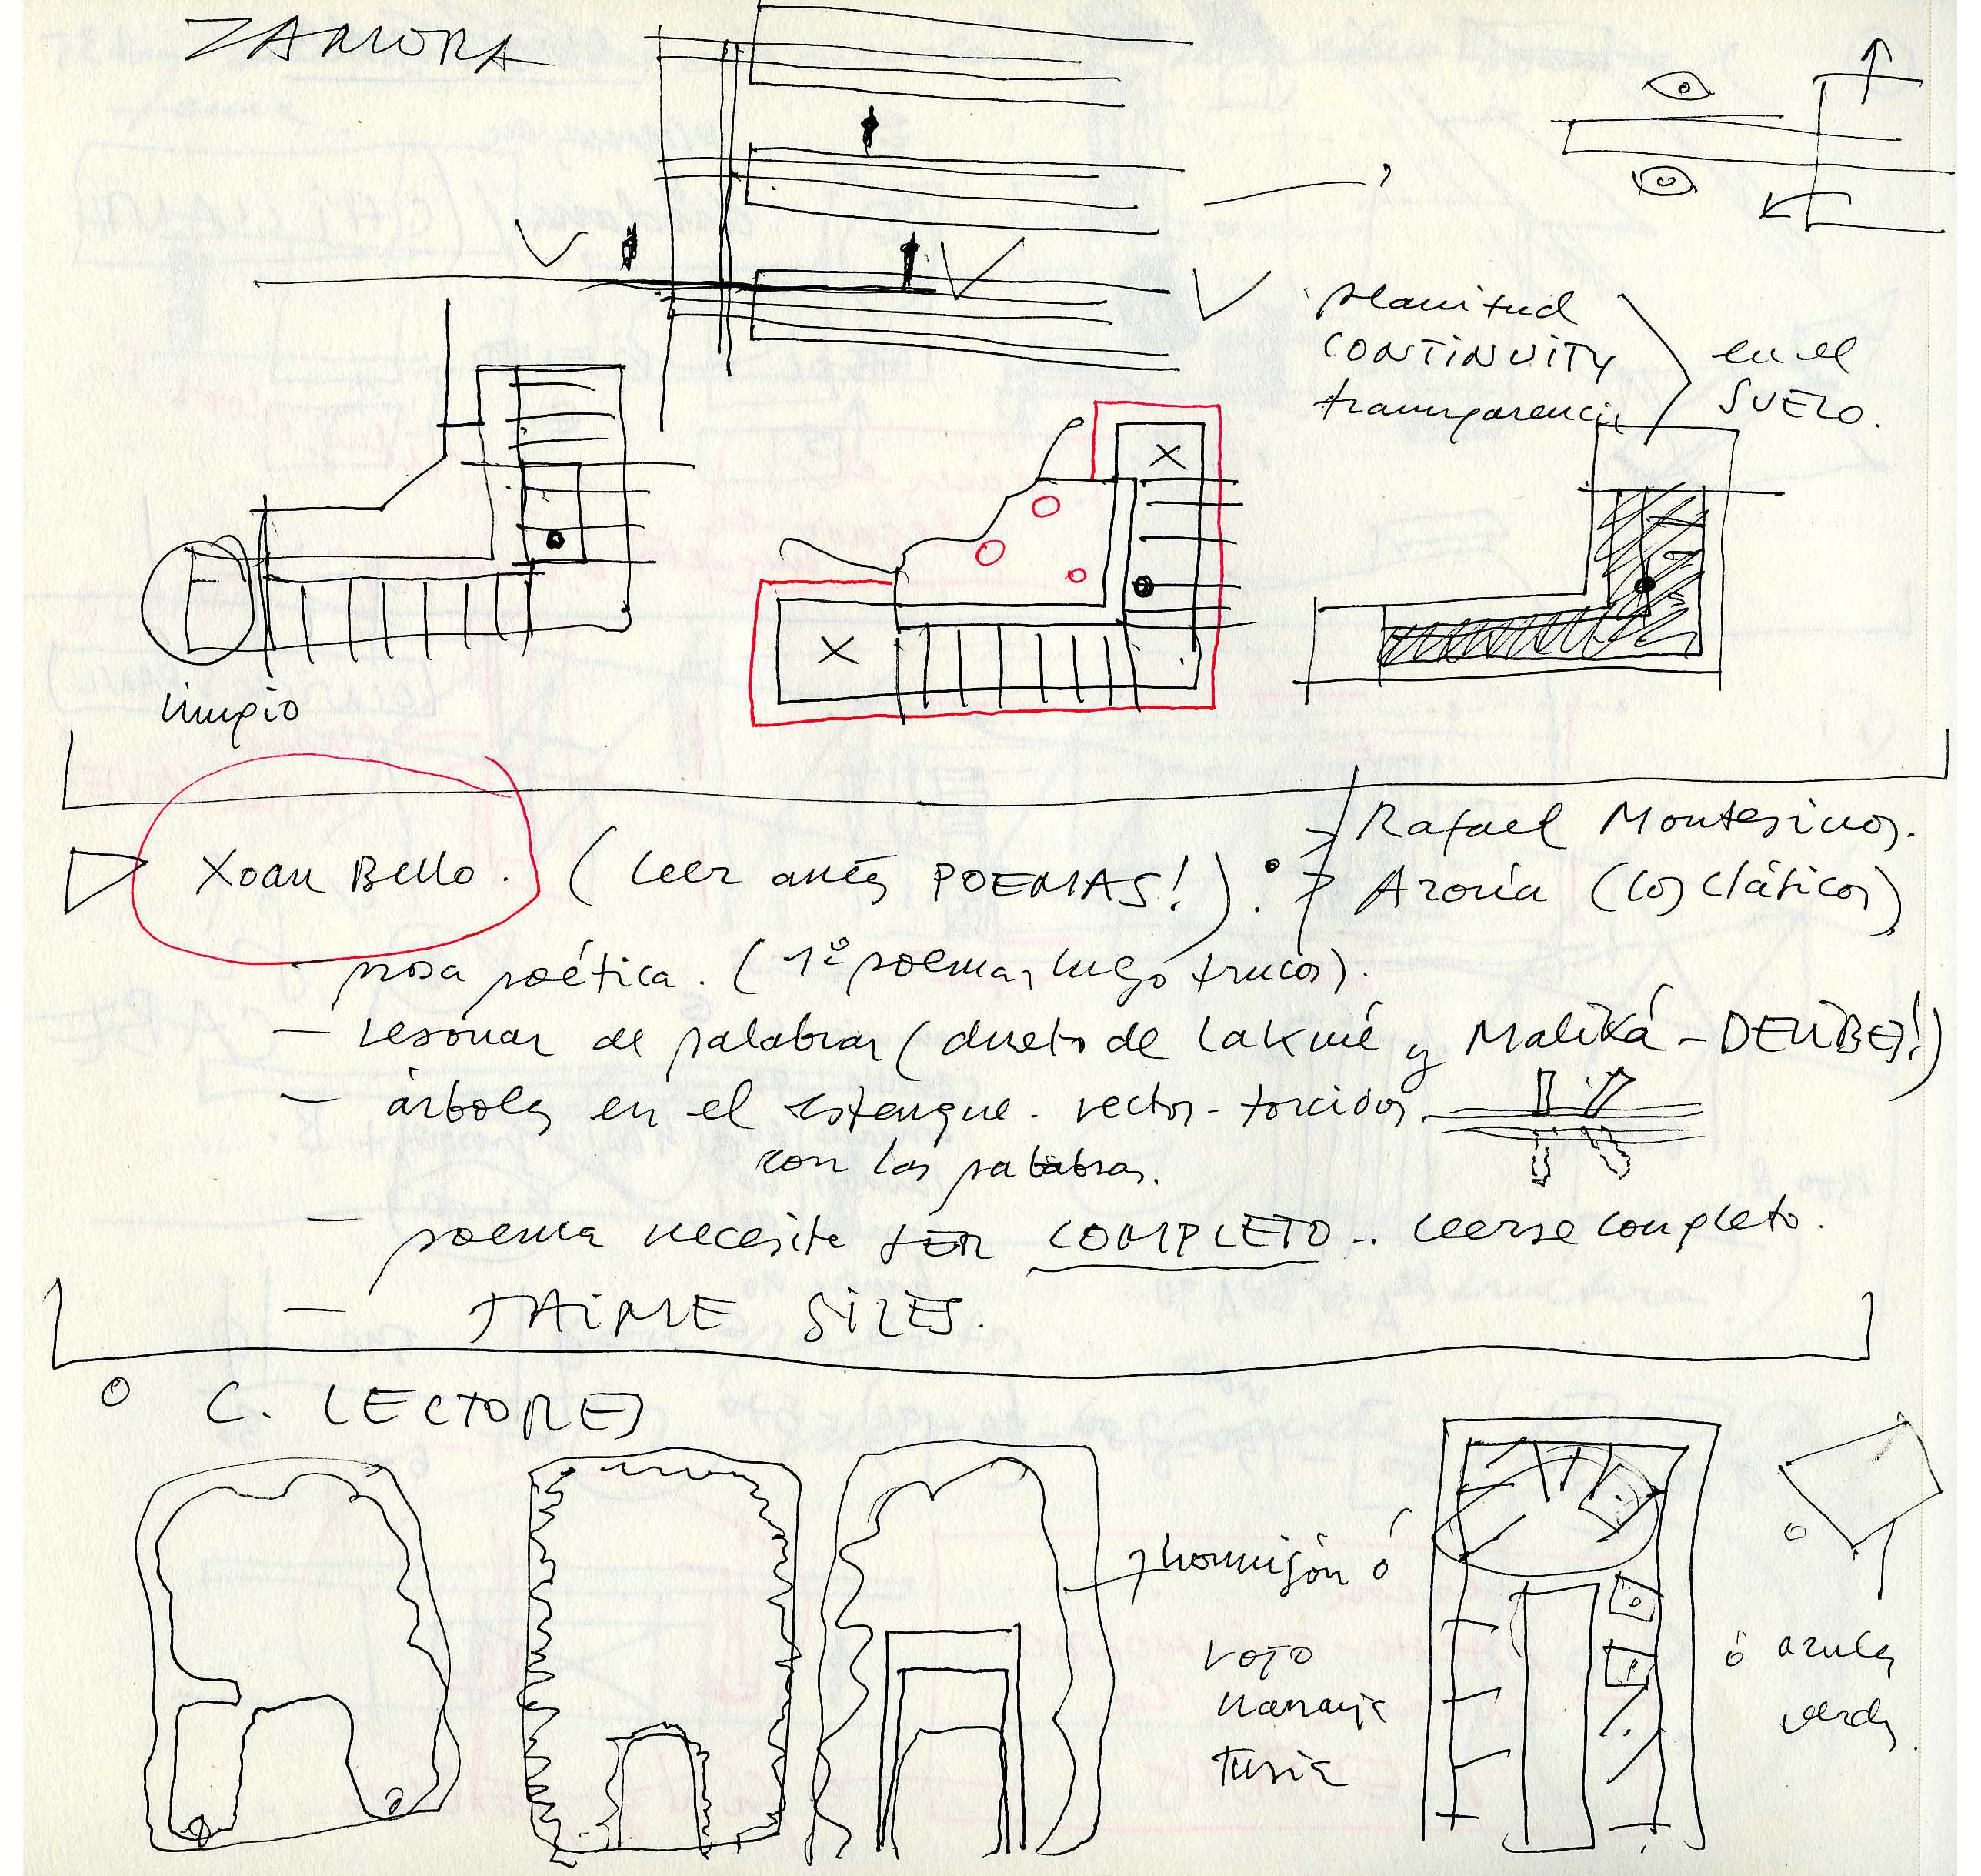 ZAMORA
planitud
CONTINUITY
transparencia
en el
SUELO.
limpio
Xoan Bello. (leer antes POEMAS!).
Rafael Montesinos.
(los clásicos)
- prosa poética. (1º poemas, luego trucos).
- resonar de palabras (dueto de Lakmé y Maliká - DELIBES!)
- árboles en el estanque. rectos - torcidos
con las palabras.
- poema necesita SER COMPLETO.. leerse completo.
- JAIME SILES.
C. LECTORES
hormigón ó
rojo
naranja
ó azules
verdes